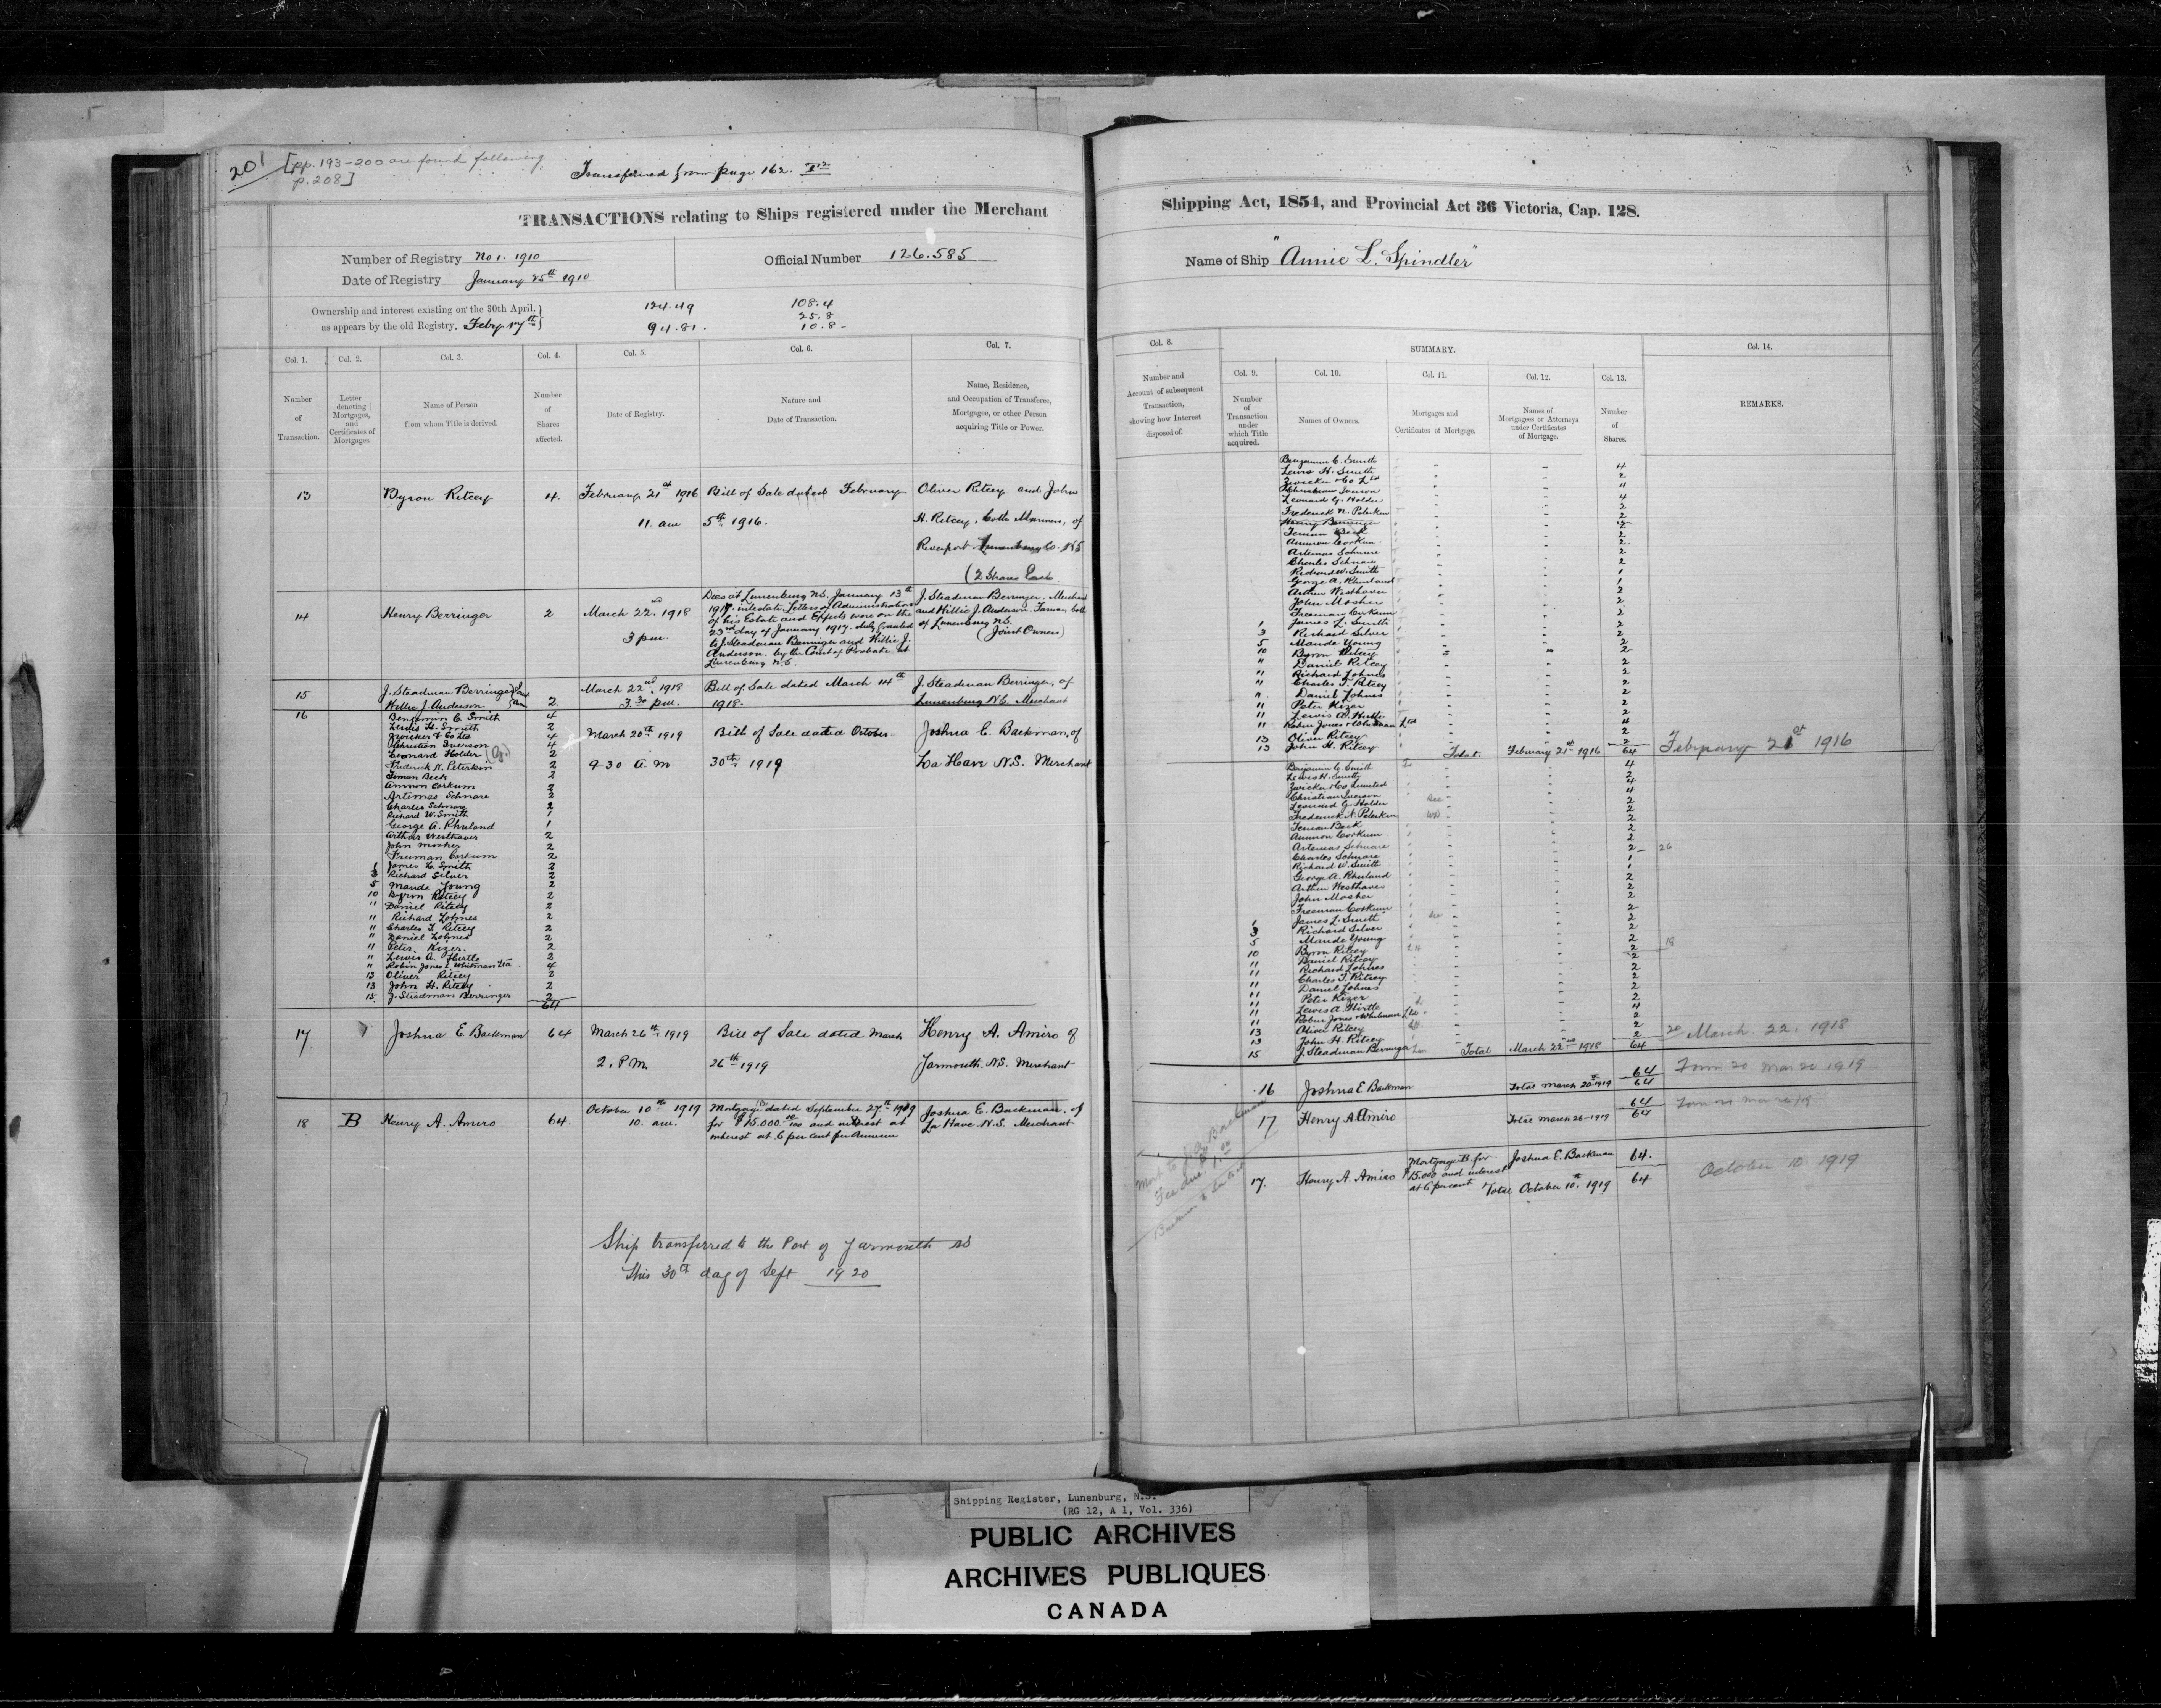 201 [pp. 193-200 are found following
p. 208]
Transferred from page 162.
TRANSACTIONS relating to Ships registered under the Merchant
Number of Registry No 1. 1910
Official Number 126.585
Date of Registry January 25th 1910
Ownership and interest existing on the 30th April,
as appears by the old Registry.
124.49
94.81.
108.4
25.8
10.8
Col. 1.
Col. 2.
Col. 3.
Col. 4.
Col. 5.
Col. 6.
Col. 7.
Number
of
Transaction.
Letter
denoting
Mortgages,
and
Certificates of
Mortgages.
Name of Person
from whom Title is derived.
Number
of
Shares
affected.
Date of Registry.
Nature and
Date of Transaction.
Name, Residence,
and Occupation of Transferee,
Mortgagee, or other Person
acquiring Title or Power.
13 Byron Ritcey 4. February 21st 1916 Bill of Sale dated February Oliver Ritcey and John
11. am 5th 1916. H. Ritcey, both Mariners, of
Riverport Lunenburg Co. NS
(2 Shares Each
14 Henry Berringer 2 March 22nd. 1918
3 pm.
Dies at Lunenburg N.S. January 13th
1917. intestate. Letters of Administration
of his Estate and Effects were on the
23rd day of January 1917. duly granted
to J. Steadman Berringer and Willie J.
Anderson. by the Court of Probate at
Lunenburg N.S.
J. Steadman Berringer. Merchant
and Willie J. Anderson. both
of Lunenburg N.S.
(Joint Owners)
15 J. Steadman Berringer
Willie J. Anderson. 2
March 22nd. 1918
3.30 pm.
Bill of Sale dated March 14th
1918.
J. Steadman Berringer, of
Lunenburg N.S. Merchant
16 Benjamin C. Smith 4
Lewis H. Smith 2
Zwicker & Co Ltd 4
Christian Iverson 4
Leonard Holder (G.) 2
Frederick N. Peterkin 2
Teman Beck 2
Ammon Corkum 2
Artemas Schnare 2
Charles Schnare 2
Richard W. Smith 1
George A. Rhuland 1
Arthur Westhaver 2
John Mosher 2
Freeman Corkum 2
1 James L. Smith 2
3 Richard Silver 2
5 Maude Young 2
10 Byron Ritcey 2
" Daniel Ritcey 2
" Richard Lohnes 2
" Charles T. Ritcey 2
" Daniel Lohnes 2
" Peter Kizer. 2
" Lewis A. Hirtle 2
" Robin Jones & Whitman Ltd 4
13 Oliver Ritcey 2
13 John H. Ritcey 2
15 J. Steadman Berringer 2
64
March 20th 1919
9 30 A.M
Bill of Sale dated October
30th 1919
Joshua E. Backman, of
La Have N.S. Merchant
17 Joshua E Backman 64 March 26th 1919 Bill of Sale dated March Henry A. Amiro of
2. P.M. 26th 1919 Yarmouth. N.S. Merchant
18 B Henry A. Amiro 64. October 10th 1919
10. am.
Mortgage "B" dated September 27th 1919
for $15.000 and interest at
interest at 6 per cent per Annum
Joshua E. Backman. of
La Have. N.S. Merchant
Ship transferred to the Port of Yarmouth NS
this 30th day of Sept 1920
Shipping Act, 1854, and Provincial Act 36 Victoria, Cap. 128.
Name of Ship "Annie L. Spindler"
Col. 8.
SUMMARY.
Col. 14.
Col. 9.
Col. 10.
Col. 11.
Col. 12.
Col. 13.
Number and
Account of subsequent
Transaction,
showing how Interest
disposed of.
Number
of
Transaction
under
which Title
acquired.
Names of Owners.
Mortgages and
Certificates of Mortgage.
Names of
Mortgagees or Attorneys
under Certificates
of Mortgage.
Number
of
Shares.
REMARKS.
Benjamin C. Smith
Lewis H. Smith
Zwicker & Co Ltd
Christian Iverson
Leonard G. Holder
Frederick N. Peterkin
Henry Berringer
Teman Beck
Ammon Corkum
Artemas Schnare
Charles Schnare
Richard W. Smith
George A. Rhuland
Arthur Westhaver
John Mosher
Freeman Corkum
1 James L. Smith
3 Richard Silver
5 Maude Young
10 Byron Ritcey
" Daniel Ritcey
" Richard Lohnes
" Charles T. Ritcey
" Daniel Lohnes
" Peter Kizer
" Lewis A. Hirtle
" Robin Jones & Whitman Ltd
13 Oliver Ritcey
13 John H. Ritcey
Total. February 21st 1916 64 February 21st 1916
Benjamin C. Smith 4
Lewis H. Smith 2
Zwicker & Co Limited 4
Christian Iverson 4
Leonard G. Holder 2
Frederick N. Peterkin 2
Teman Beck 2
Ammon Corkum 2
Artemas Schnare 2
Charles Schnare 2 26
Richard W. Smith 1
George A. Rhuland 1
Arthur Westhaver 2
John Mosher 2
Freeman Corkum 2
1 James L. Smith 2
3 Richard Silver 2
5 Maude Young 2
10 Byron Ritcey 2 18
11 Daniel Ritcey 2
11 Richard Lohnes 2
11 Charles T. Ritcey 2
11 Daniel Lohnes 2
11 Peter Kizer 2
11 Lewis A. Hirtle 2
11 Robin Jones & Whitman Ltd 4
13 Oliver Ritcey 2
13 John H. Ritcey 2
15 J. Steadman Berringer 2 20 March. 22. 1918
Total March 22nd 1918 64
16 Joshua E Backman 64
Total March 20th 1919 64
Mar 20 1919
17 Henry A Amiro 64
Total March 26-1919 64
17. Henry A. Amiro
Mortgage B for
$15.000 and interest
at 6 percent
Joshua E. Backman 64.
Total October 10th. 1919 64
October 10. 1919
Shipping Register, Lunenburg, N.S.
(RG 12, A 1, Vol. 336)
PUBLIC ARCHIVES
ARCHIVES PUBLIQUES
CANADA